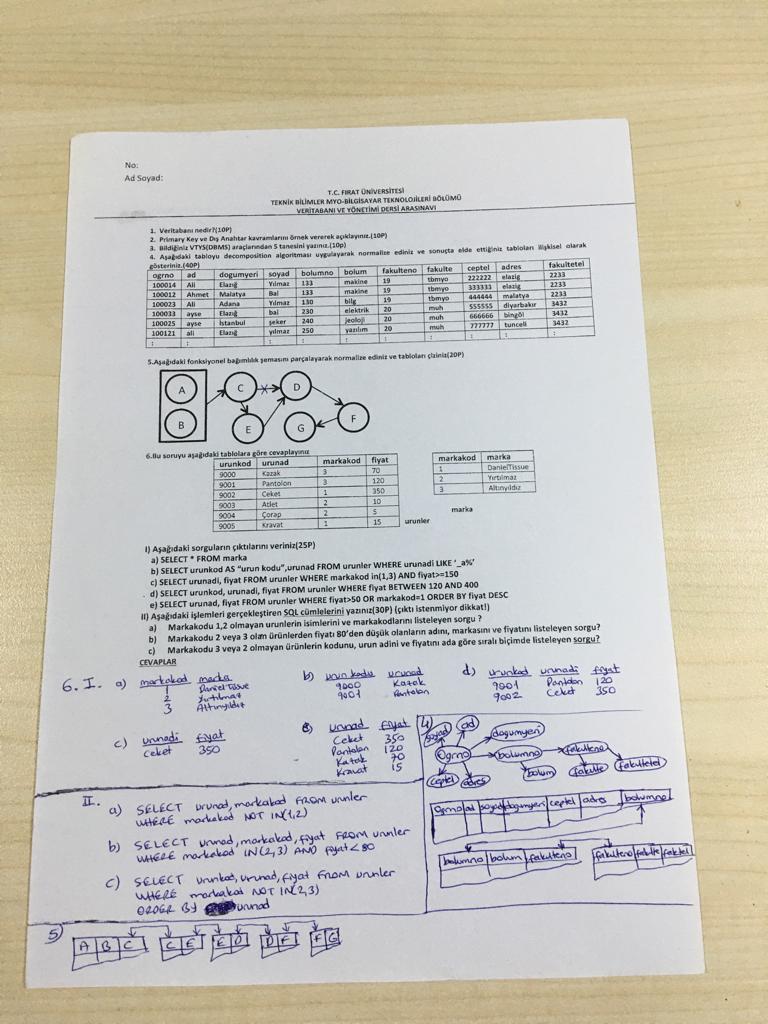 No:
Ad Soyad:
T.C. FIRAT ÜNİVERSİTESİ
TEKNİK BİLİMLER MYO-BİLGİSAYAR TEKNOLOJİLERİ BÖLÜMÜ
VERİTABANI VE YÖNETİMİ DERSİ ARASINAVI
1. Veritabanı nedir?(10P)
2. Primary Key ve Dış Anahtar kavramlarını örnek vererek açıklayınız.(10P)
3. Bildiğiniz VTYS(DBMS) araçlarından 5 tanesini yazınız.(10p)
4. Aşağıdaki tabloyu decomposition algoritması uygulayarak normalize ediniz ve sonuçta elde ettiğiniz tabloları ilişkisel olarak
gösteriniz.(40P)
ogrno ad dogumyeri soyad bolumno bolum fakulteno fakulte ceptel adres fakultetel
100014 Ali Elazığ Yılmaz 133 makine 19 tbmyo 222222 elazig 2233
100012 Ahmet Malatya Bal 133 makine 19 tbmyo 333333 elazig 2233
100023 Ali Adana Yılmaz 130 bilg 19 tbmyo 444444 malatya 2233
100033 ayse Elazığ bal 230 elektrik 20 muh 555555 diyarbakır 3432
100025 ayse İstanbul şeker 240 jeoloji 20 muh 666666 bingöl 3432
100121 ali Elazığ yılmaz 250 yazılım 20 muh 777777 tunceli 3432
: : : : : : : : :
5.Aşağıdaki fonksiyonel bağımlılık şemasını parçalayarak normalize ediniz ve tabloları çiziniz(20P)
A C D
B E G F
6.Bu soruyu aşağıdaki tablolara göre cevaplayınız
urunkod urunad markakod fiyat
9000 Kazak 3 70
9001 Pantolon 3 120
9002 Ceket 1 350
9003 Atlet 2 10
9004 Çorap 2 5
9005 Kravat 1 15
urunler
markakod marka
1 DanielTissue
2 Yırtılmaz
3 Altınyıldız
marka
I) Aşağıdaki sorguların çıktılarını veriniz(25P)
a) SELECT * FROM marka
b) SELECT urunkod AS "urun kodu",urunad FROM urunler WHERE urunadi LIKE '_a%'
c) SELECT urunadi, fiyat FROM urunler WHERE markakod in(1,3) AND fiyat>=150
d) SELECT urunkod, urunadi, fiyat FROM urunler WHERE fiyat BETWEEN 120 AND 400
e) SELECT urunad, fiyat FROM urunler WHERE fiyat>50 OR markakod=1 ORDER BY fiyat DESC
II) Aşağıdaki işlemleri gerçekleştiren SQL cümlelerini yazınız(30P) (çıktı istenmiyor dikkat!)
a) Markakodu 1,2 olmayan urunlerin isimlerini ve markakodlarını listeleyen sorgu ?
b) Markakodu 2 veya 3 olan ürünlerden fiyatı 80'den düşük olanların adını, markasını ve fiyatını listeleyen sorgu?
c) Markakodu 3 veya 2 olmayan ürünlerin kodunu, urun adini ve fiyatını ada göre sıralı biçimde listeleyen sorgu?
CEVAPLAR
6. I. a) markakod marka
1 Daniel Tissue
2 Yırtılmaz
3 Altınyıldız
b) urun kodu urunad
9000 Kazak
9001 Pantolon
d) urunkod urunadi fiyat
9001 Pantolon 120
9002 Ceket 350
c) urunadi fiyat
ceket 350
e) urunad fiyat
Ceket 350
Pantolon 120
Kazak 70
Kravat 15
4
soyad ad dogumyeri
Ogrno bolumno fakulteno
ceptel adres bolum fakulte fakultetel
Ogrno ad soyad dogumyeri ceptel adres bolumno
bolumno bolum fakulteno
fakulteno fakulte faktel
II.
a) SELECT urunad, markakod FROM urunler
WHERE markakod NOT IN(1,2)
b) SELECT urunad, markakod, fiyat FROM urunler
WHERE markakod IN(2,3) AND fiyat<80
c) SELECT urunkod, urunad, fiyat FROM urunler
WHERE markakod NOT IN(2,3)
ORDER BY urunad
5) A B C C E E D D F F G